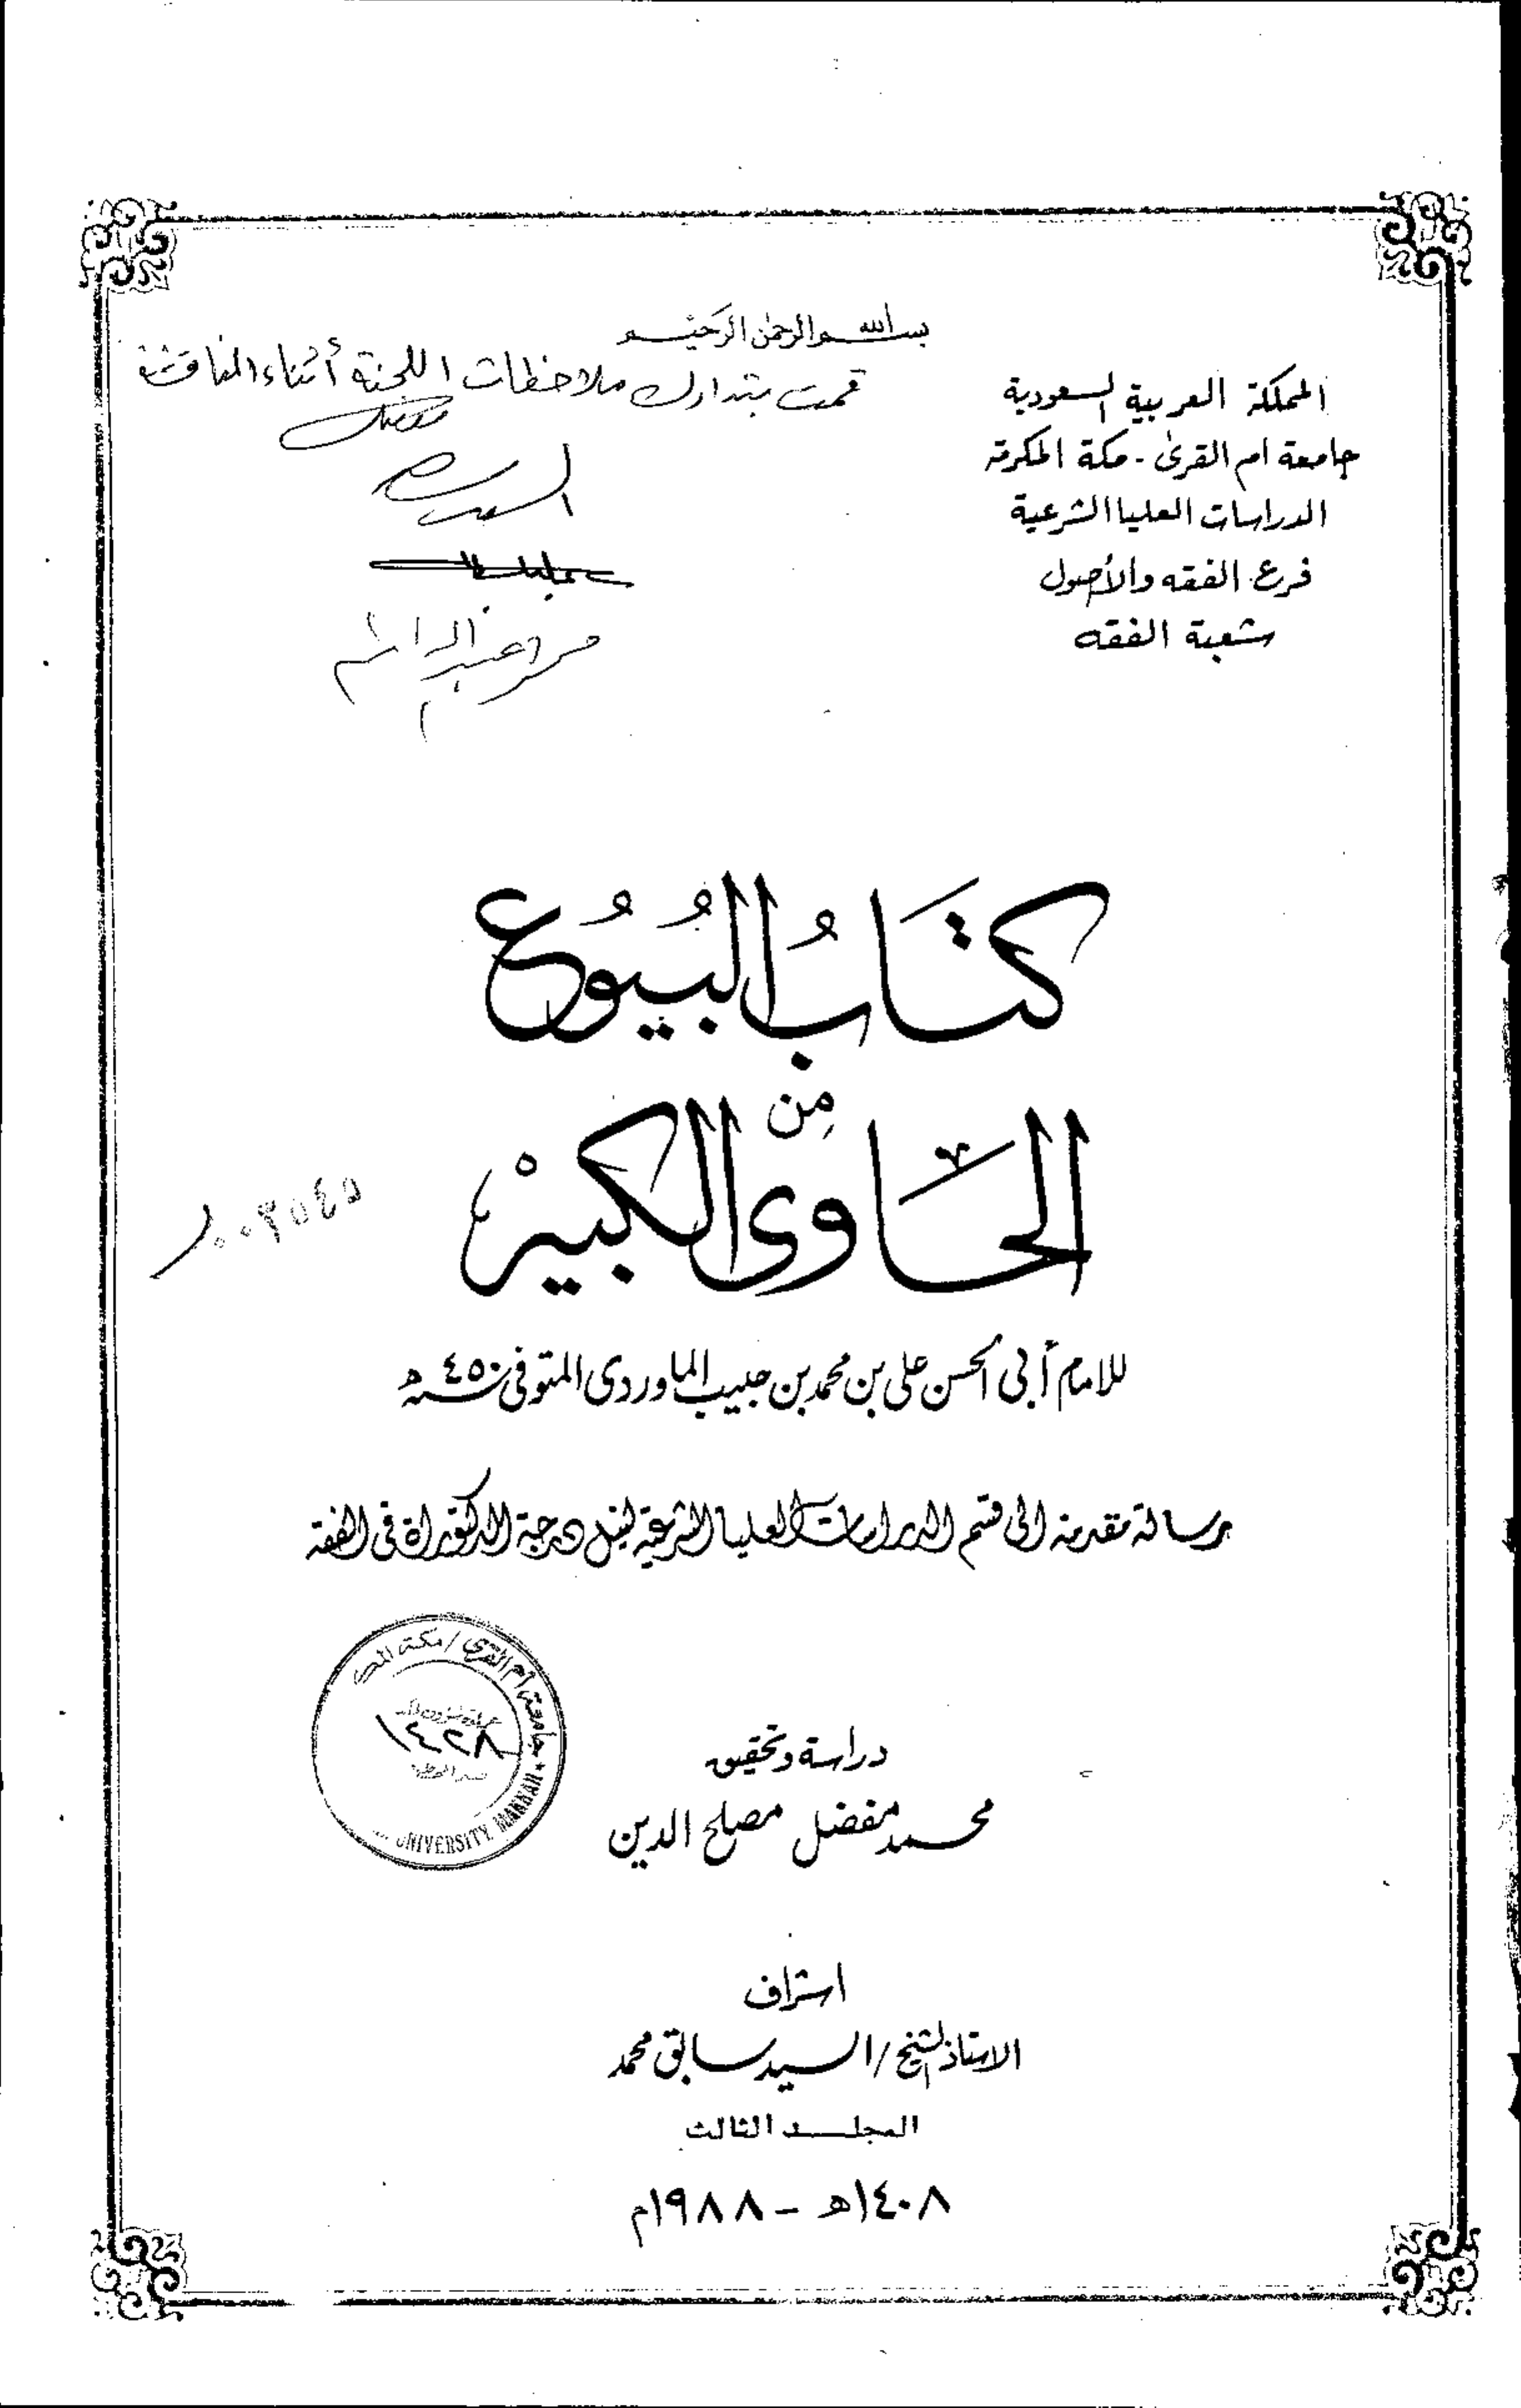 بسم الله الرحمن الرحيم
قمت بتدارك ملاحظات اللجنة أثناء المناقشة
المملكة العربية السعودية
جامعة ام القرى - مكة المكرمة
الدراسات العليا الشرعية
فرع الفقه والأصول
شعبة الفقه
كتَابُ البُيُوُع
مِن
الحَاوى الكبيرْ
٠٠٣٥٤٥
للامام أبى الحسن على بن محمد بن حبيب الماوردى المتوفى سنة ٤٥٠ ه
رسالة مقدمة الى قسم الدراسات العليا الشرعية لنيل درجة الدكتوراة فى الفقه
جامعة أم القرى / مكة
١٤٢٨
UNIVERSITY MAKKAH
دراسة وتحقيق
محمد مفضل مصلح الدين
اشراف
الاستاذ الشيخ / السيد سابق محمد
المجلد الثالث
١٤٠٨ه - ١٩٨٨م